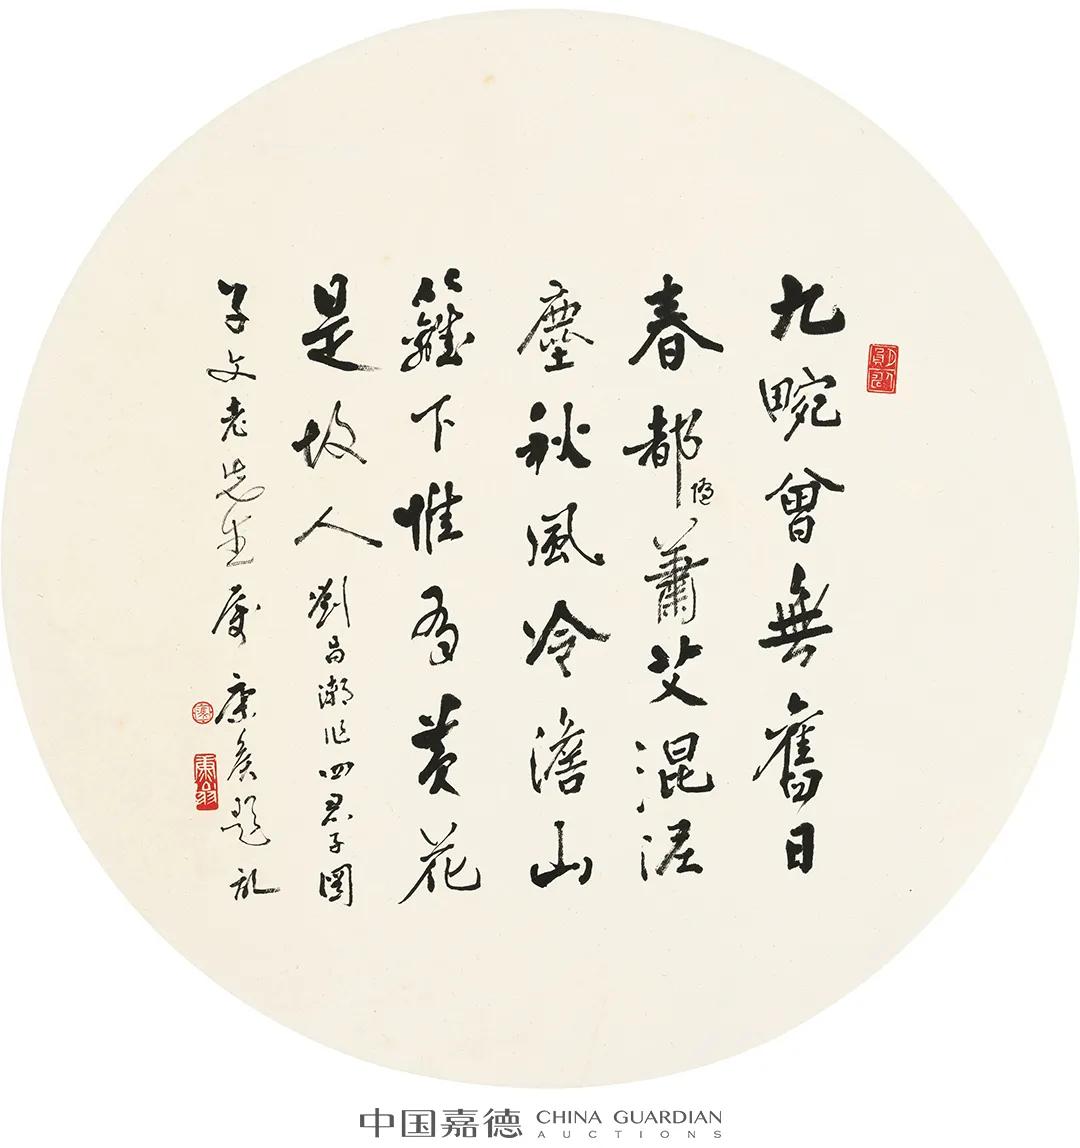 九畹曾無舊日
春都隨蕭艾混泥
塵秋風冷澹山
籬下惟有黃花
是故人 劉昌潮作四君子圖
子文老先生屬 康侯題記
中国嘉德 CHINA GUARDIAN
AUCTIONS